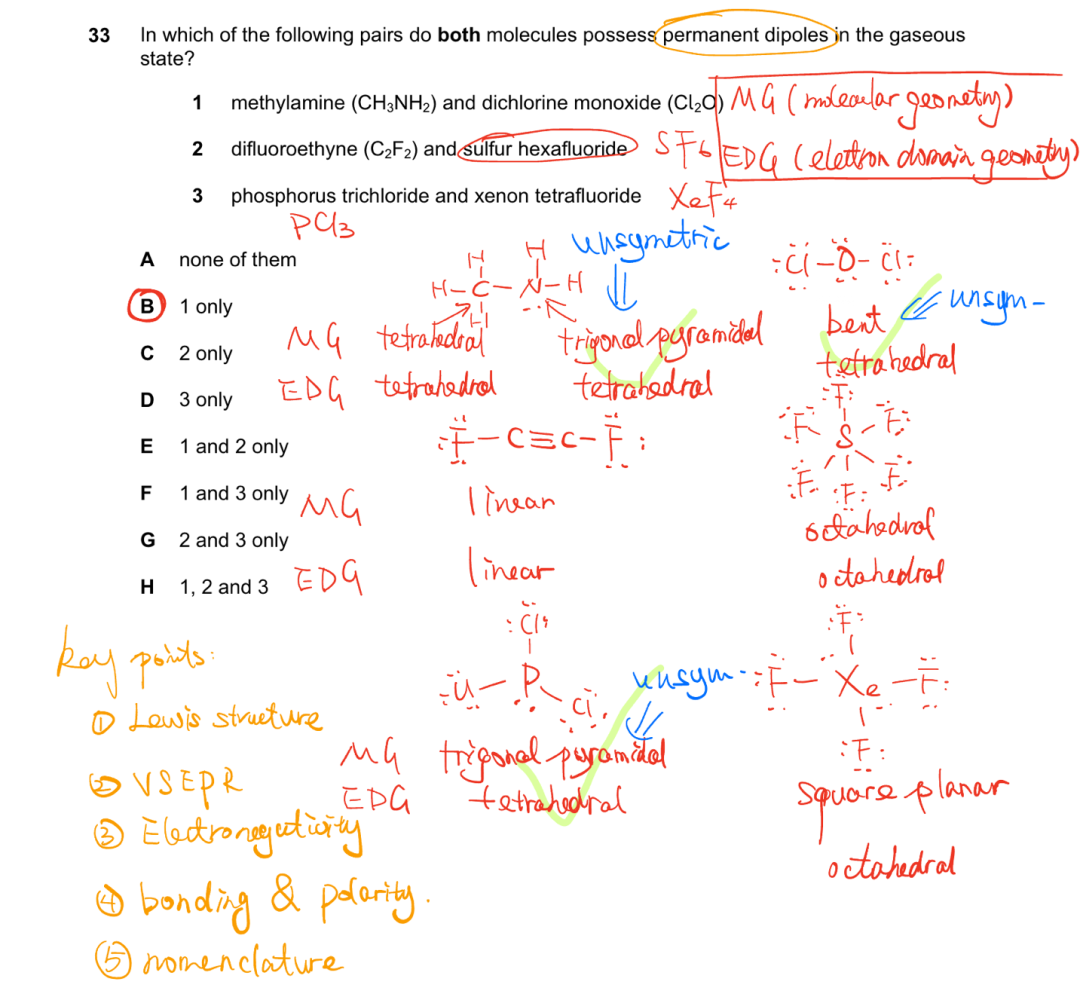 33 In which of the following pairs do both molecules possess permanent dipoles in the gaseous
state?
1 methylamine (CH₃NH₂) and dichlorine monoxide (Cl₂O) MG (molecular geometry)
2 difluoroethyne (C₂F₂) and sulfur hexafluoride SF6 EDG (elettron domain geometry)
3 phosphorus trichloride and xenon tetrafluoride XeF4
PCl3
A none of them
B 1 only
C 2 only
D 3 only
E 1 and 2 only
F 1 and 3 only
G 2 and 3 only
H 1, 2 and 3
unsymetric
H H
H-C-N-H
H
:Cl-O-Cl:
unsym-
MG tetrahedral trigonal pyramidal bent
EDG tetrahedral tetrahedral tetrahedral
:F-C≡C-F:
F
F S F
F F F
MG linear octahedral
EDG linear octahedral
:Cl:
P
Cl
unsym-
F
:F-Xe-F:
:F:
MG trigonal pyramidal square planar
EDG tetrahedral octahedral
key points:
① Lewis structure
② VSEPR
③ Electronegativity
④ bonding & polarity.
⑤ nomenclature